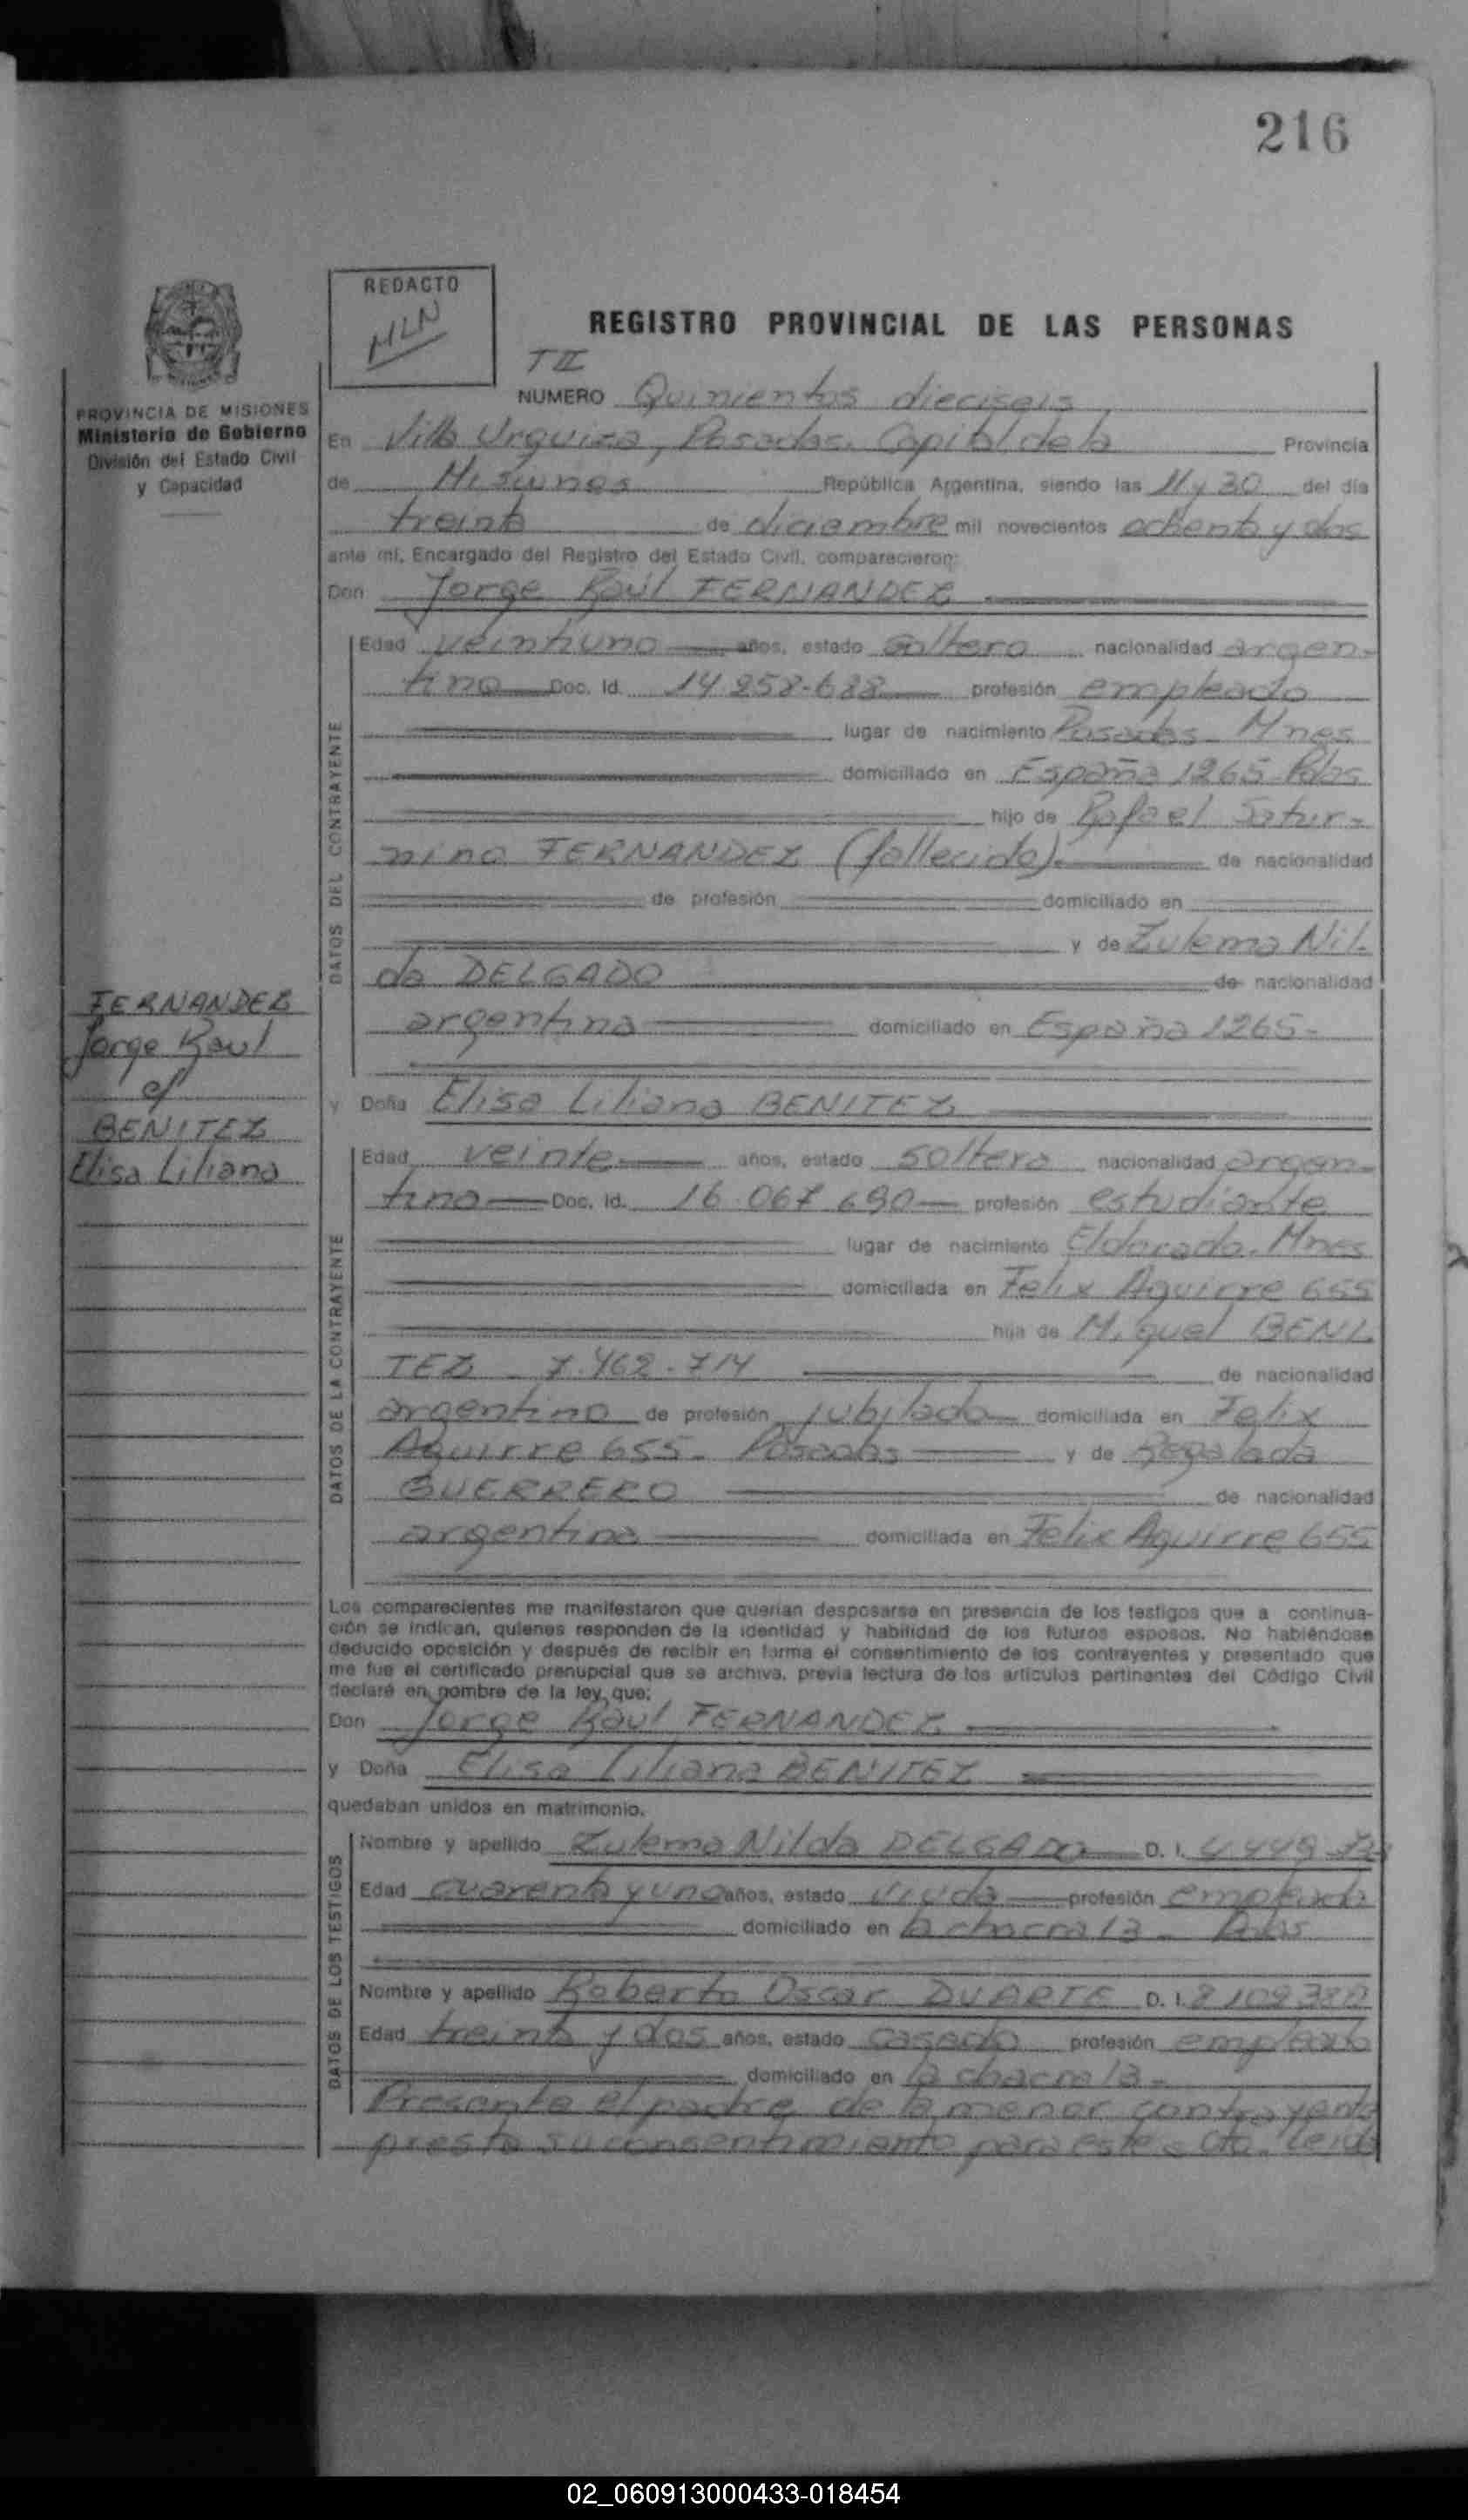 216
REDACTO
MLN
REGISTRO PROVINCIAL DE LAS PERSONAS
T II
NUMERO Quinientos dieciseis
PROVINCIA DE MISIONES
Ministerio de Gobierno
División del Estado Civil
y Capacidad
En Villa Urquiza, Posadas. Capital de la Provincia
de Misiones República Argentina, siendo las 11 y 30 del día
treinta de diciembre mil novecientos ochenta y dos
ante mí, Encargado del Registro del Estado Civil, comparecieron:
Don Jorge Raúl FERNANDEZ
DATOS DEL CONTRAYENTE
Edad veintiuno años, estado soltero nacionalidad argen-
tino Doc. Id. profesión empleado
lugar de nacimiento Posadas - Mnes
domiciliado en España 1265 - Pdas
hijo de Rafael Satur-
nino FERNANDEZ (fallecido).- de nacionalidad
de profesión domiciliado en
y de Zulema Nil-
da DELGADO de nacionalidad
argentina domiciliado en España 1265-
FERNANDEZ
Jorge Raul
c/
BENITEZ
Elisa Liliana
y Doña Elisa Liliana BENITEZ
DATOS DE LA CONTRAYENTE
Edad veinte años, estado soltera nacionalidad argen-
tina Doc. Id. 16.067.690 profesión estudiante
lugar de nacimiento Eldorado. Mnes
domiciliada en Felix Aguirre 655
hija de Miguel BENI-
TEZ 7.462.714 de nacionalidad
argentino de profesión jubilado domiciliada en Felix
Aguirre 655- Posadas y de Regalada
GUERRERO de nacionalidad
argentina domiciliada en Felix Aguirre 655
Los comparecientes me manifestaron que querían desposarse en presencia de los testigos que a continua-
ción se indican, quienes responden de la identidad y habilidad de los futuros esposos. No habiéndose
deducido oposición y después de recibir en forma el consentimiento de los contrayentes y presentado que
me fue el certificado prenupcial que se archiva, previa lectura de los artículos pertinentes del Código Civil
declaré en nombre de la ley que:
Don Jorge Raul FERNANDEZ
y Doña Elisa Liliana BENITEZ
quedaban unidos en matrimonio.
DATOS DE LOS TESTIGOS
Nombre y apellido Zulema Nilda DELGADO D. I.
Edad cuarenta y uno años, estado viuda profesión empleada
domiciliado en la chacra 13 - Pdas
Nombre y apellido Roberto Oscar DUARTE D. I.
Edad treinta y dos años, estado casado profesión empleado
domiciliado en la chacra 13-
Presente el padre de la menor contrayente
presta su consentimiento para este acto. Leida
02_060913000433-018454